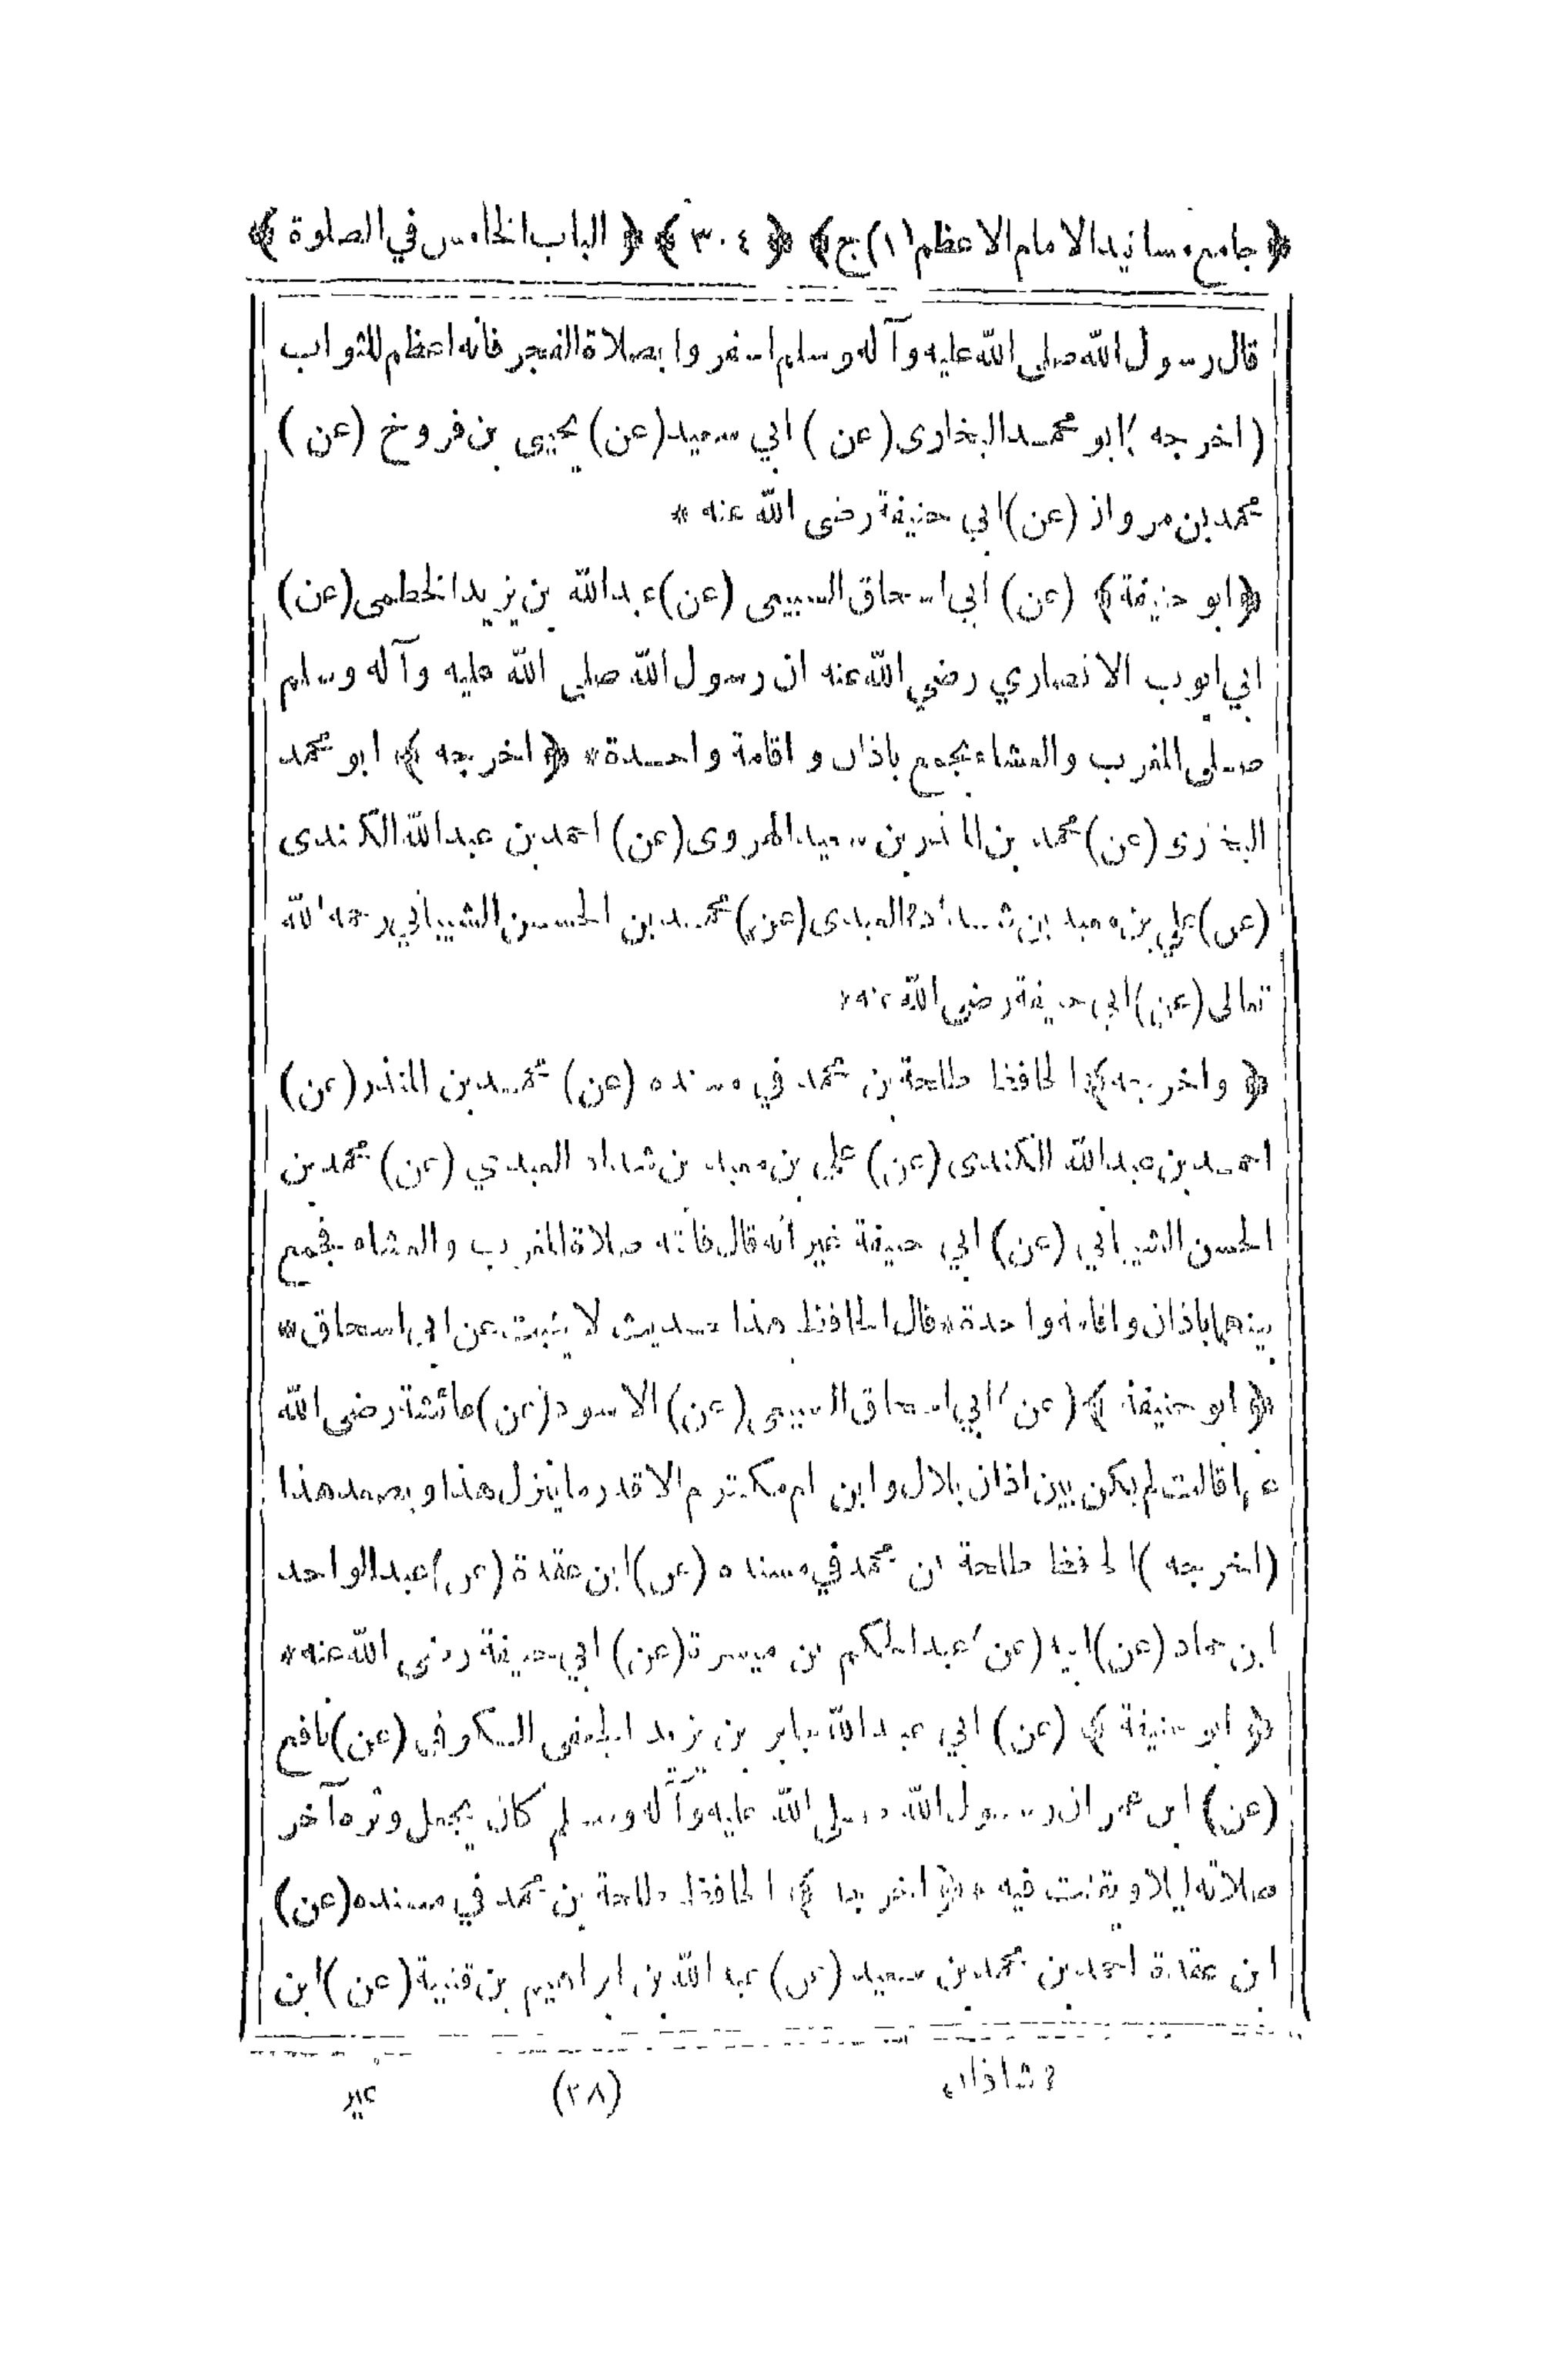 ﴿ جامع مسانيد الامام الاعظم (١) ج ﴾ ﴿ ٣٠٤ ﴾ ﴿ الباب الخامس في الصلوة ﴾
قال رسول الله صلى الله عليه وآله وسلم اسفروا بصلاة الفجر فانه اعظم للثواب
(اخرجه) ابو محمد البخارى (عن) ابي سعيد (عن) يحيى بن فروخ (عن)
محمد بن مروان (عن) ابي حنيفة رضى الله عنه *
﴿ ابو حنيفة ﴾ (عن) ابي اسحاق السبيعى (عن) عبدالله بن يزيد الخطمى (عن)
ابي ايوب الانصاري رضي الله عنه ان رسول الله صلى الله عليه وآله وسلم
صلى المغرب والعشاء بجمع باذان واقامة واحدة * ﴿ اخرجه ﴾ ابو محمد
البخارى (عن) محمد بن المنذر بن سعيد الهروى (عن) احمد بن عبدالله الكندى
(عن) علي بن معبد بن شداد العبدى (عن) محمد بن الحسن الشيباني رحمه الله
تعالى (عن) ابي حنيفة رضى الله عنه *
﴿ واخرجه ﴾ الحافظ طلحة بن محمد في مسنده (عن) محمد بن المنذر (عن)
احمد بن عبدالله الكندى (عن) علي بن معبد بن شداد العبدي (عن) محمد بن
الحسن الشيباني (عن) ابي حنيفة غير انه قال فاته صلاة المغرب والعشاء فجمع
بينهما باذان واقامة واحدة * قال الحافظ هذا حديث لا يثبت عن ابي اسحاق *
﴿ ابو حنيفة ﴾ (عن) ابي اسحاق السبيعى (عن) الاسود (عن) عائشة رضى الله
عنها قالت لم يكن بين اذان بلال وابن ام مكتوم الا قدر ما ينزل هذا ويصعد هذا
(اخرجه) الحافظ طلحة بن محمد في مسنده (عن) ابن عقدة (عن) عبد الواحد
ابن حماد (عن) ابيه (عن) عبد الحكم بن ميسرة (عن) ابي حنيفة رضى الله عنه *
﴿ ابو حنيفة ﴾ (عن) ابي عبدالله جابر بن يزيد الجعفى الكوفى (عن) نافع
(عن) ابن عمر ان رسول الله صلى الله عليه وآله وسلم كان يجعل وتره آخر
صلاته ليلا ويقنت فيه * ﴿ اخرجه ﴾ الحافظ طلحة بن محمد في مسنده (عن)
ابن عقدة احمد بن محمد بن سعيد (عن) عبدالله بن ابراهيم بن قتيبة (عن) ابن
شاذان
(٣٨)